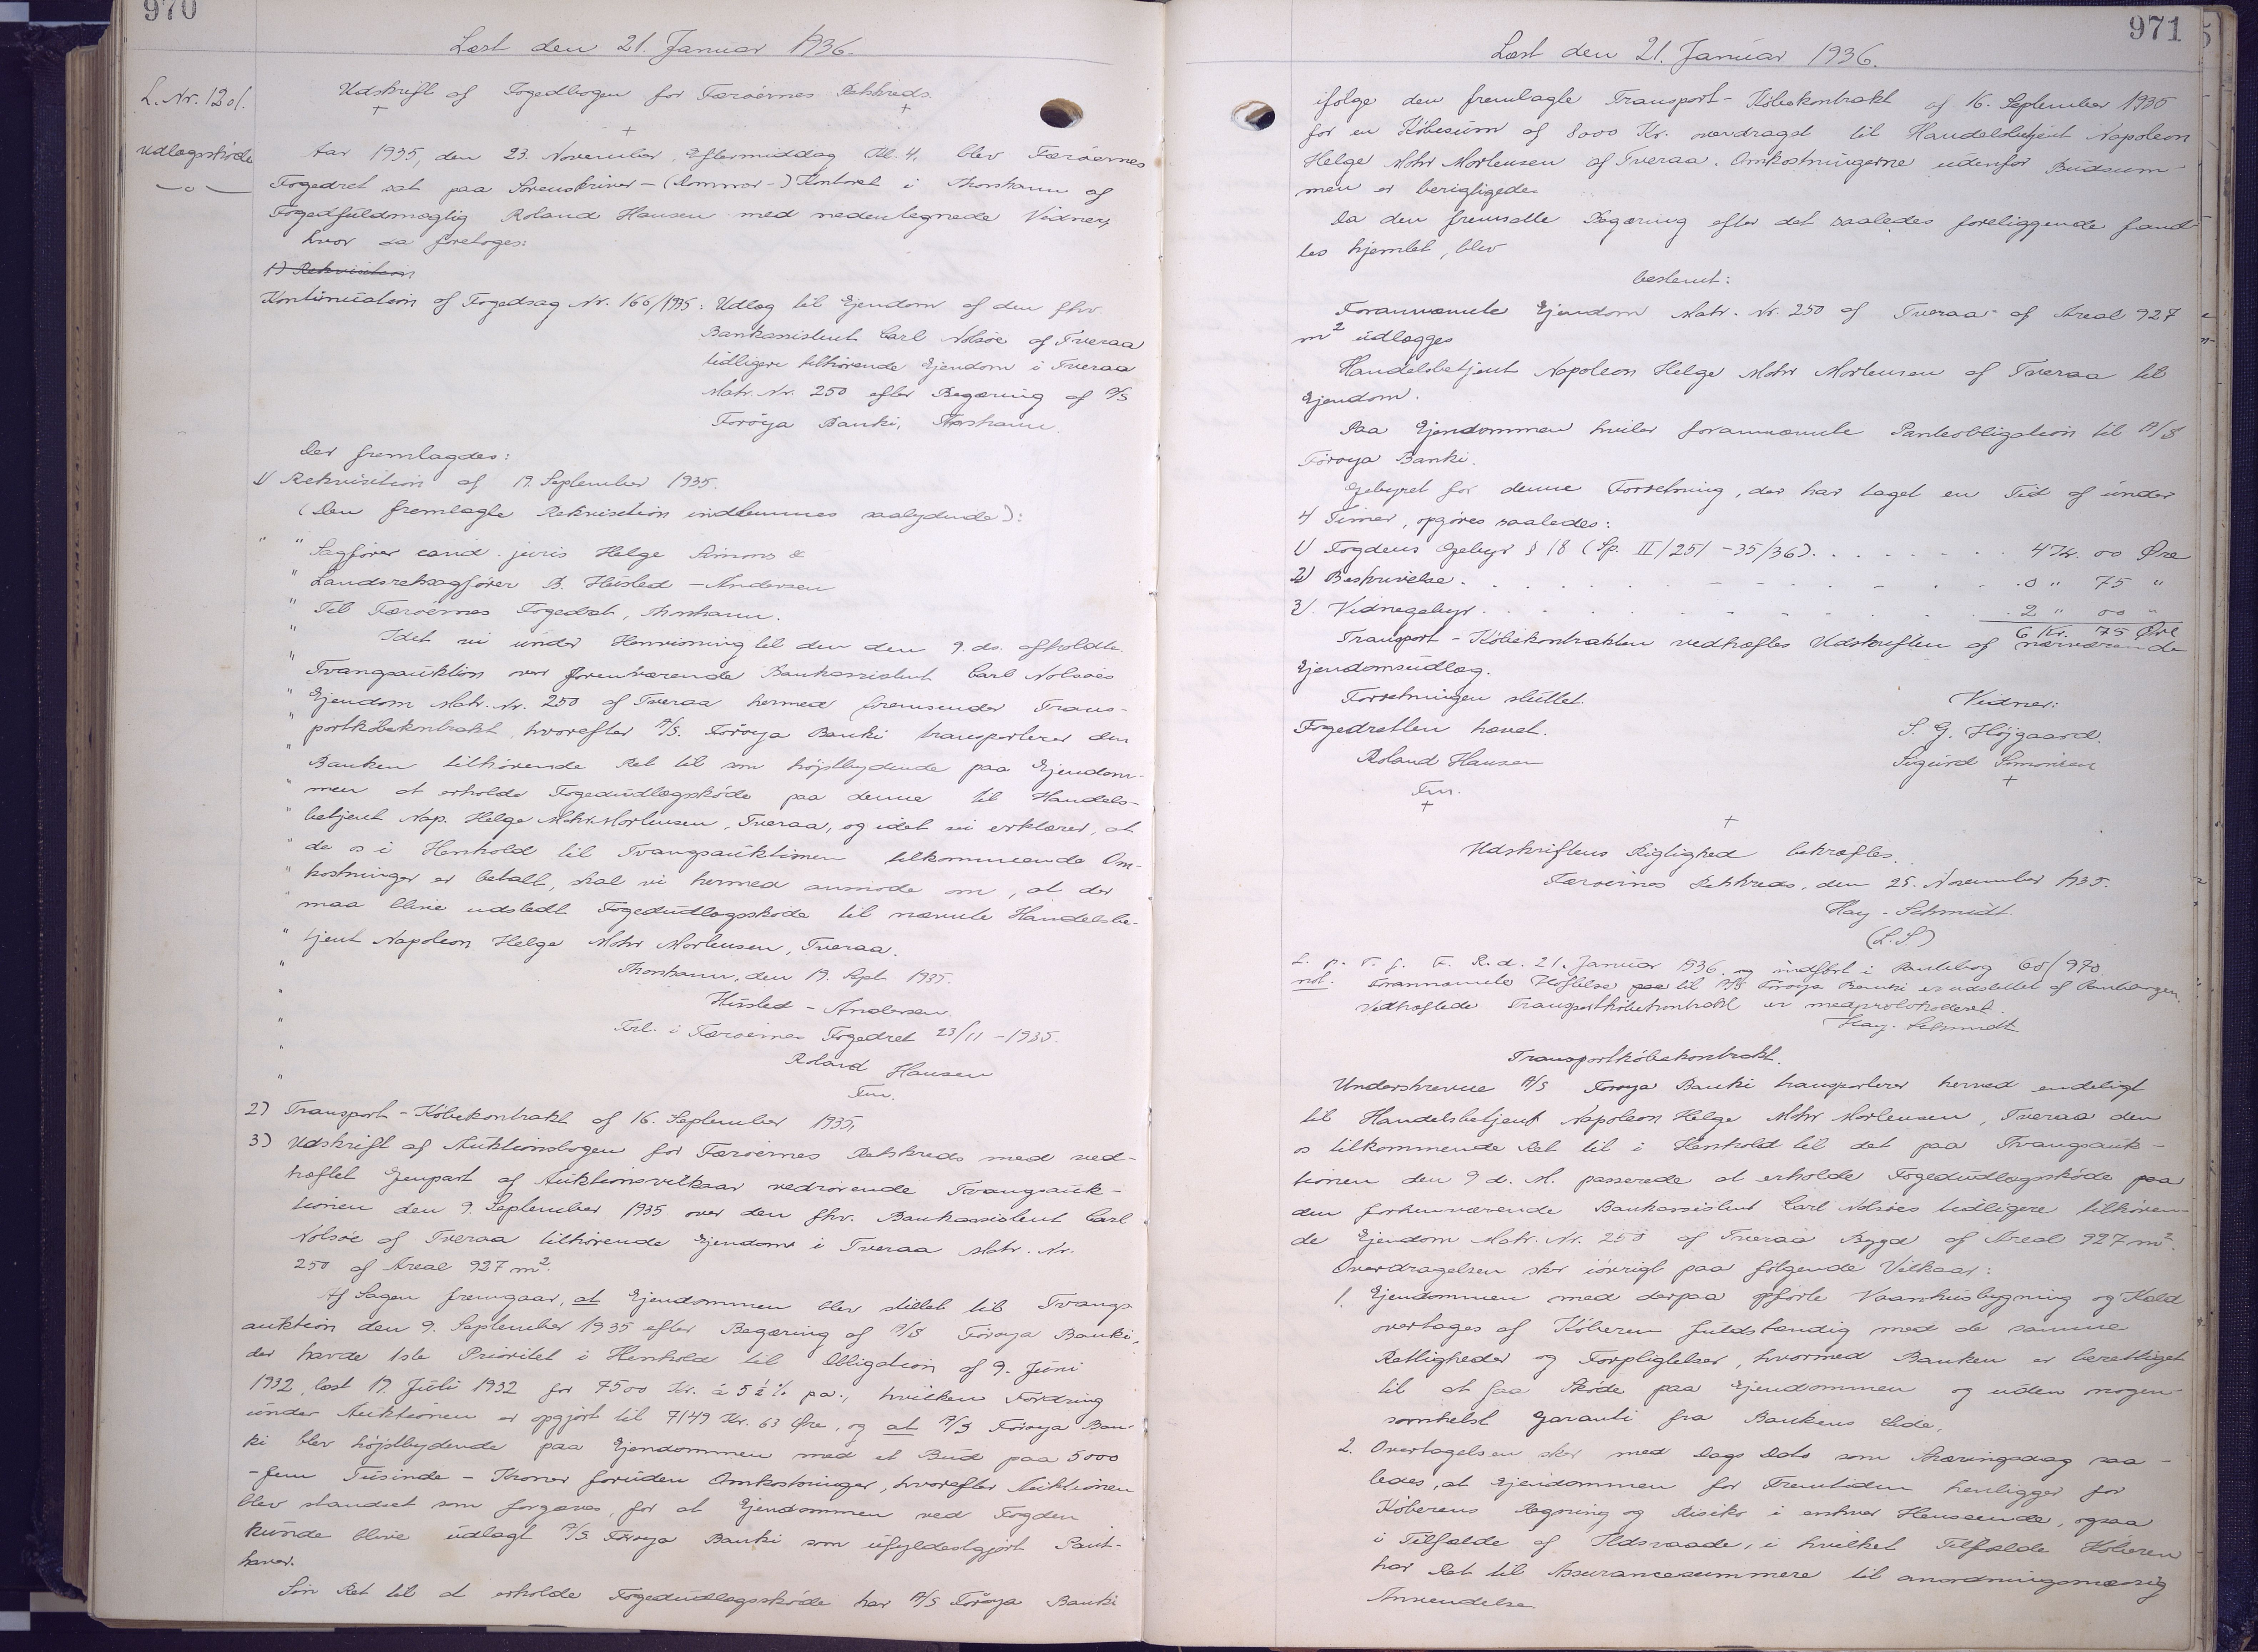 970
Læst den 21. Januar 1936.
L. Nr. 1201.
Udlægsskøde
Udskrift af Fogedbogen for Færøernes Retskreds.
Aar 1935, den 23. November, Eftermiddag Kl. 4, blev Færøernes
Fogedret sat paa Sorenskriver- (Dommer-) Kontoret i Thorshavn af
Fogedfuldmægtig Roland Hansen med nedentegnede Vidner,
hvor da foretoges:
1) Rekvisition
Kontinuation af Fogedsag Nr. 166/1935: Udlæg til Ejendom af den fhv.
Bankassistent Carl Nolsøe af Tveraa
tidligere tilhørende Ejendom i Tveraa
Matr. Nr. 250 efter Begæring af A/S
Føroya Banki, Thorshavn.
Der fremlagdes:
1) Rekvisition af 19. September 1935.
(Den fremlagte Rekvisition indlemmes saalydende):
" " Sagfører cand. juris Helge Simons &
" Landsretssagfører B. Husted-Andersen
" Til Færøernes Fogedret, Thorshavn.
" Idet vi under Henvisning til den den 9. ds. afholdte
" Tvangsauktion over forenværende Bankassistent Carl Nolsøes
" Ejendom Matr. Nr. 250 af Tveraa hermed fremsender Trans-
" portkøbekontrakt, hvorefter A/S. Föroya Banki transporterer den
" Banken tilhørende Ret til som højstbydende paa Ejendom-
" men at erholde Fogedudlægsskøde paa denne til Handels-
" betjent Nap. Helge Mohr Mortensen, Tveraa, og idet vi erklærer, at
" de os i Henhold til Tvangsauktionen tilkommende Om-
" kostninger er betalt, skal vi hermed anmode om, at der
" maa blive udstedt Fogedudlægsskøde til nævnte Handelsbe-
" tjent Napoleon Helge Mohr Mortensen, Tveraa.
" Thorshavn, den 19. Sept. 1935.
" Husted-Andersen.
" Frl. i Færøernes Fogedret 23/11-1935.
" Roland Hansen
" Fm.
2) Transport-Købekontrakt af 16. September 1935,
3) Udskrift af Auktionsbogen for Færøernes Retskreds med ved-
hæftet Genpart af Auktionsvilkaar vedrørende Tvangsauk-
tionen den 9. September 1935 over den fhv. Bankassistent Carl
Nolsøe af Tveraa tilhørende Ejendom i Tveraa Matr. Nr.
250 af Areal 927 m².
Af Sagen fremgaar, at Ejendommen blev stillet til Tvangs-
auktion den 9. September 1935 efter Begæring af A/S Föroya Banki,
der havde 1ste Prioritet i Henhold til Obligation af 9. Juni
1932, læst 19. Juli 1932 for 7500 Kr. à 5½% pa., hvilken Fordring
under Auktionen er opgjort til 7149 Kr. 63 Øre, og at A/S Föroya Ban-
ki blev højstbydende paa Ejendommen med et Bud paa 5000
-fem Tusinde- Kroner foruden Omkostninger, hvorefter Auktionen
blev standset som forgæves, for at Ejendommen ved Fogden
kunde blive udlagt A/S Föroya Banki som ufyldestgjort Pant-
haver.
Sin Ret til at erholde Fogedudlægsskøde har A/S Föroya Banki
971
Læst den 21. Januar 1936.
ifølge den fremlagte Transport-Købekontrakt af 16. September 1935
for en Købesum af 8000 Kr. overdraget til Handelsbetjent Napoleon
Helge Mohr Mortensen af Tveraa. Omkostningerne udenfor Budsum-
men er berigtigede.
Da den fremsatte Begæring efter det saaledes foreliggende fand-
tes hjemlet, blev
bestemt:
Forannævnte Ejendom Matr. Nr. 250 af Tveraa af Areal 927
m² udlægges
Handelsbetjent Napoleon Helge Mohr Mortensen af Tveraa til
Ejendom.
Paa Ejendommen hviler forannævnte Panteobligation til A/S
Föroya Banki.
Gebyret for denne Forretning, der har taget en Tid af under
4 Timer, opgøres saaledes:
1) Fogdens Gebyr § 18 (Sp. II/251-35/36). . . . . . . . 4 Kr. 00 Øre
2) Beskrivelse. . . . . . . . . . . . 0 " 75 "
3) Vidnegebyr. . . . . . . . . . . . 2 " 00 "
6 Kr. 75 Øre
Transport-Købekontrakten vedhæftes Udskriften af nærværende
Ejendomsudlæg.
Forretningen sluttet.
Fogedretten hævet.
Roland Hansen
Fm.
Vidner:
S. G. Højgaard.
Sigurd Simonsen
Udskriftens Rigtighed bekræftes.
Færøernes Retskreds, den 25. November 1935.
Hay-Schmidt.
(L.S.)
L. p. T. f. F. R. d. 21. Januar 1936 og indført i Pantebog 60/970.
not. Forannævnte Hæftelse paa til A/S Föroya Banki er udslettet af Pantebogen.
Vedhæftede Transportkøbekontrakt er medprotokolleret.
Hay-Schmidt
Transportkøbekontrakt.
Underskrevne A/S Föroya Banki transporterer herved endeligt
til Handelsbetjent Napoleon Helge Mohr Mortensen, Tveraa den
os tilkommende Ret til i Henhold til det paa Tvangsauk-
tionen den 9 d. M. passerede at erholde Fogedudlægsskøde paa
den forhenværende Bankassistent Carl Nolsøes tidligere tilhøren-
de Ejendom Matr. Nr. 250 af Tveraa Bygd af Areal 927 m².
Overdragelsen sker iøvrigt paa følgende Vilkaar:
1. Ejendommen med derpaa opførte Vaanhusbygning og Kald
overtages af Køberen fuldstændig med de samme
Rettigheder og Forpligtelser, hvormed Banken er berettiget
til at faa Skøde paa Ejendommen og uden nogen-
somhelst Garanti fra Bankens Side.
2. Overtagelsen sker med Dags Dato som Skæringsdag saa-
ledes, at Ejendommen for Fremtiden henligger for
Køberens Regning og Risiko i enhver Henseende, ogsaa
i Tilfælde af Ildsvaade, i hvilket Tilfælde Køberen
har Ret til Assurancesummere til anordningsmæssig
Anvendelse.